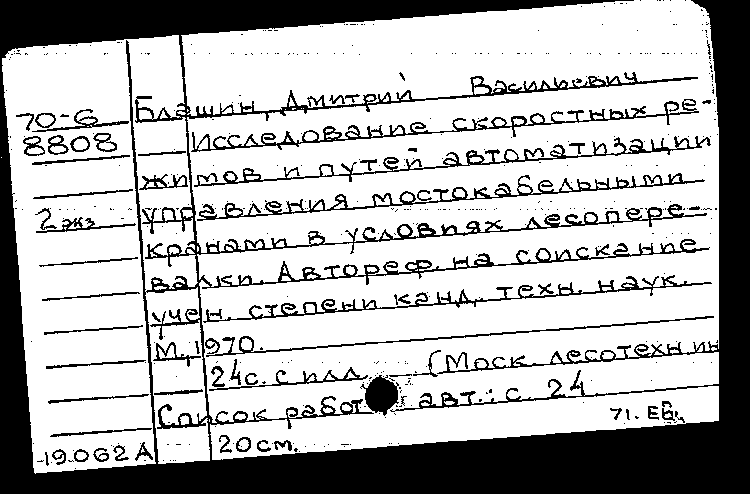 70-6
8808
2 экз
Блашин, Дмитрий Васильевич
Исследование скоростных ре-
жимов и путей автоматизации
управления мостокабельными
кранами в условиях лесопере-
валки. Автореф. на соискание
учен. степени канд. техн. наук.
М., 1970.
24с. с илл. (Моск. лесотехн. ин
Список работ авт.: с. 24.
20см.
19.062 А
71.